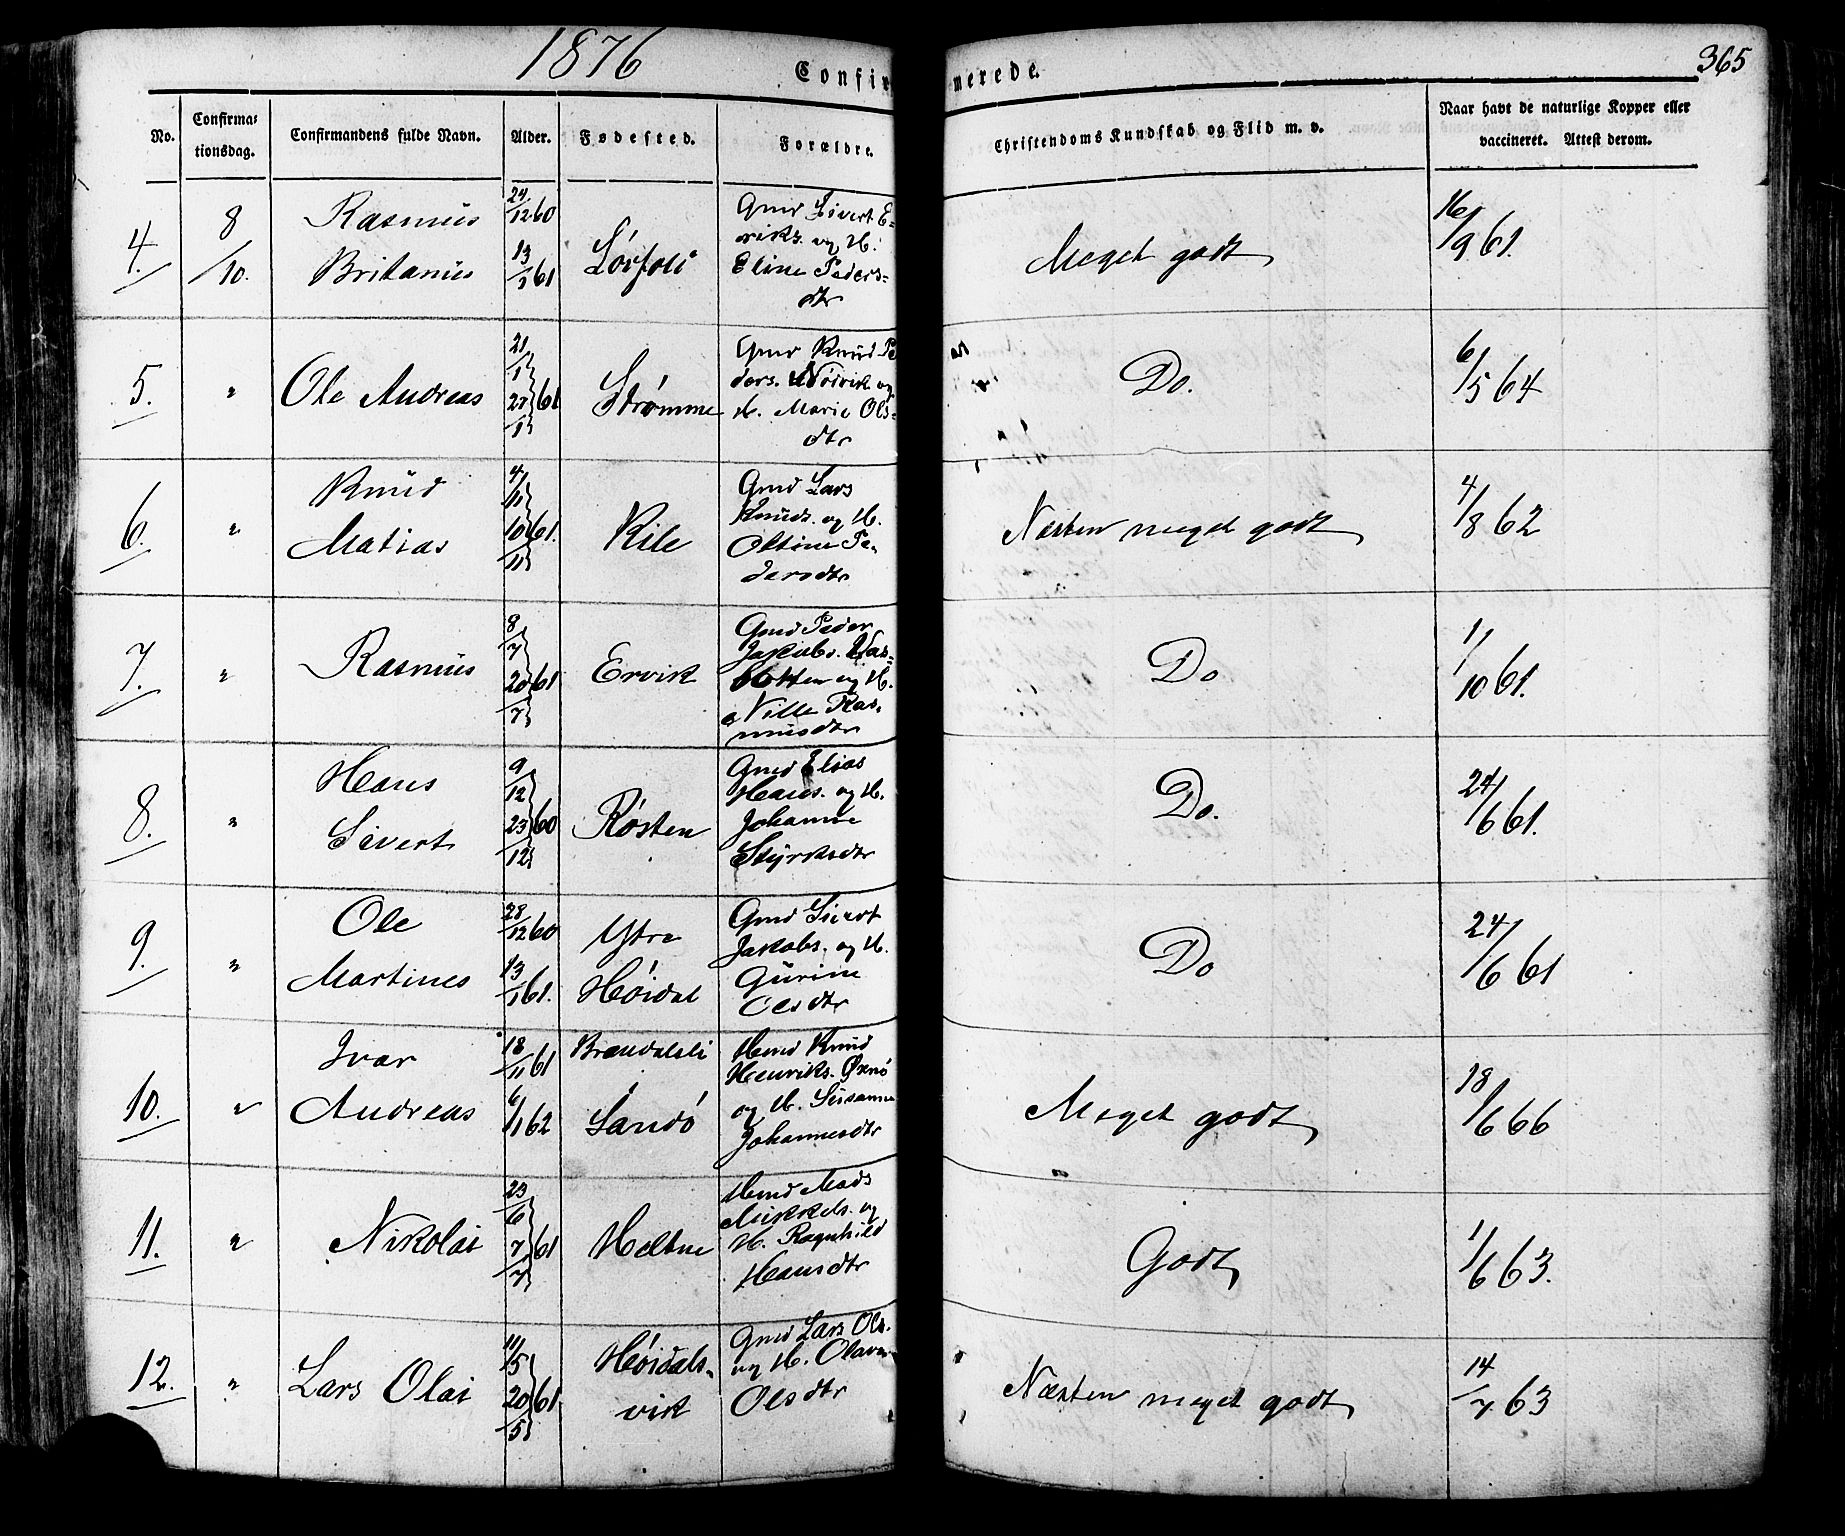 1876
365
Confirmerede.
No.
Confirma-
tionsdag.
Confirmandens fulde Navn.
Alder.
Fødested.
Forældre.
Christendoms Kundskab og Flid m. v.
Naar havt de naturlige Kopper eller
vaccineret. Attest derom.
4.
8/10.
Rasmus
Britanus
24/12 60
13/1 61
Gmd Sivert E-
riks. og H.
Eline Peders-
dtr
Meget godt
16/9 61.
5.
"
Ole Andreas
21/1
27/1 61
Strømme
Gmd Knud Pe
ders. Nødvik og
H. Marie Ols-
dtr
Do.
6/5 64
6.
"
Knud
Matias
4/11
10/11 61.
Kile
Gmd Lars
Knuds. og H.
Oltine Pe-
dersdtr
Næsten meget godt
4/8 62
7.
"
Rasmus
8/7
20/7 61
Ervik
Gmd Peder
Jakobs. Vas-
botten og H.
Nille Ras-
musdtr
Do
1/10 61.
8.
"
Hans
Sivert
9/12
23/12 60
Røsten
Gmd Elias
Hans. og H.
Johanne
Styrksdtr
Do.
24/6 61.
9.
"
Ole
Martines
28/12 60
13/1 61.
Ytre
Høidal
Gmd Sivert
Jakobs. og H.
Gurine
Olsdtr
Do
24/6 61
10.
"
Ivar
Andreas
18/11 61
6/1 62
Brandalsli
Sandø
Hmd Knud
Henriks. Øxnø
og H. Susanne
Johannesdtr
Meget godt
18/6 66
11.
"
Nikolai
23/6
7/7 61
Heltne
Hmd Mads
Mikkels. og
H. Ragnhild
Hansdtr
Godt
1/6 63.
12.
"
Lars Olai
11/5
20/5 61
Høidals-
vik
Gmd Lars Ols.
og H. Olave
Olsdtr
Næsten meget godt
14/7 63